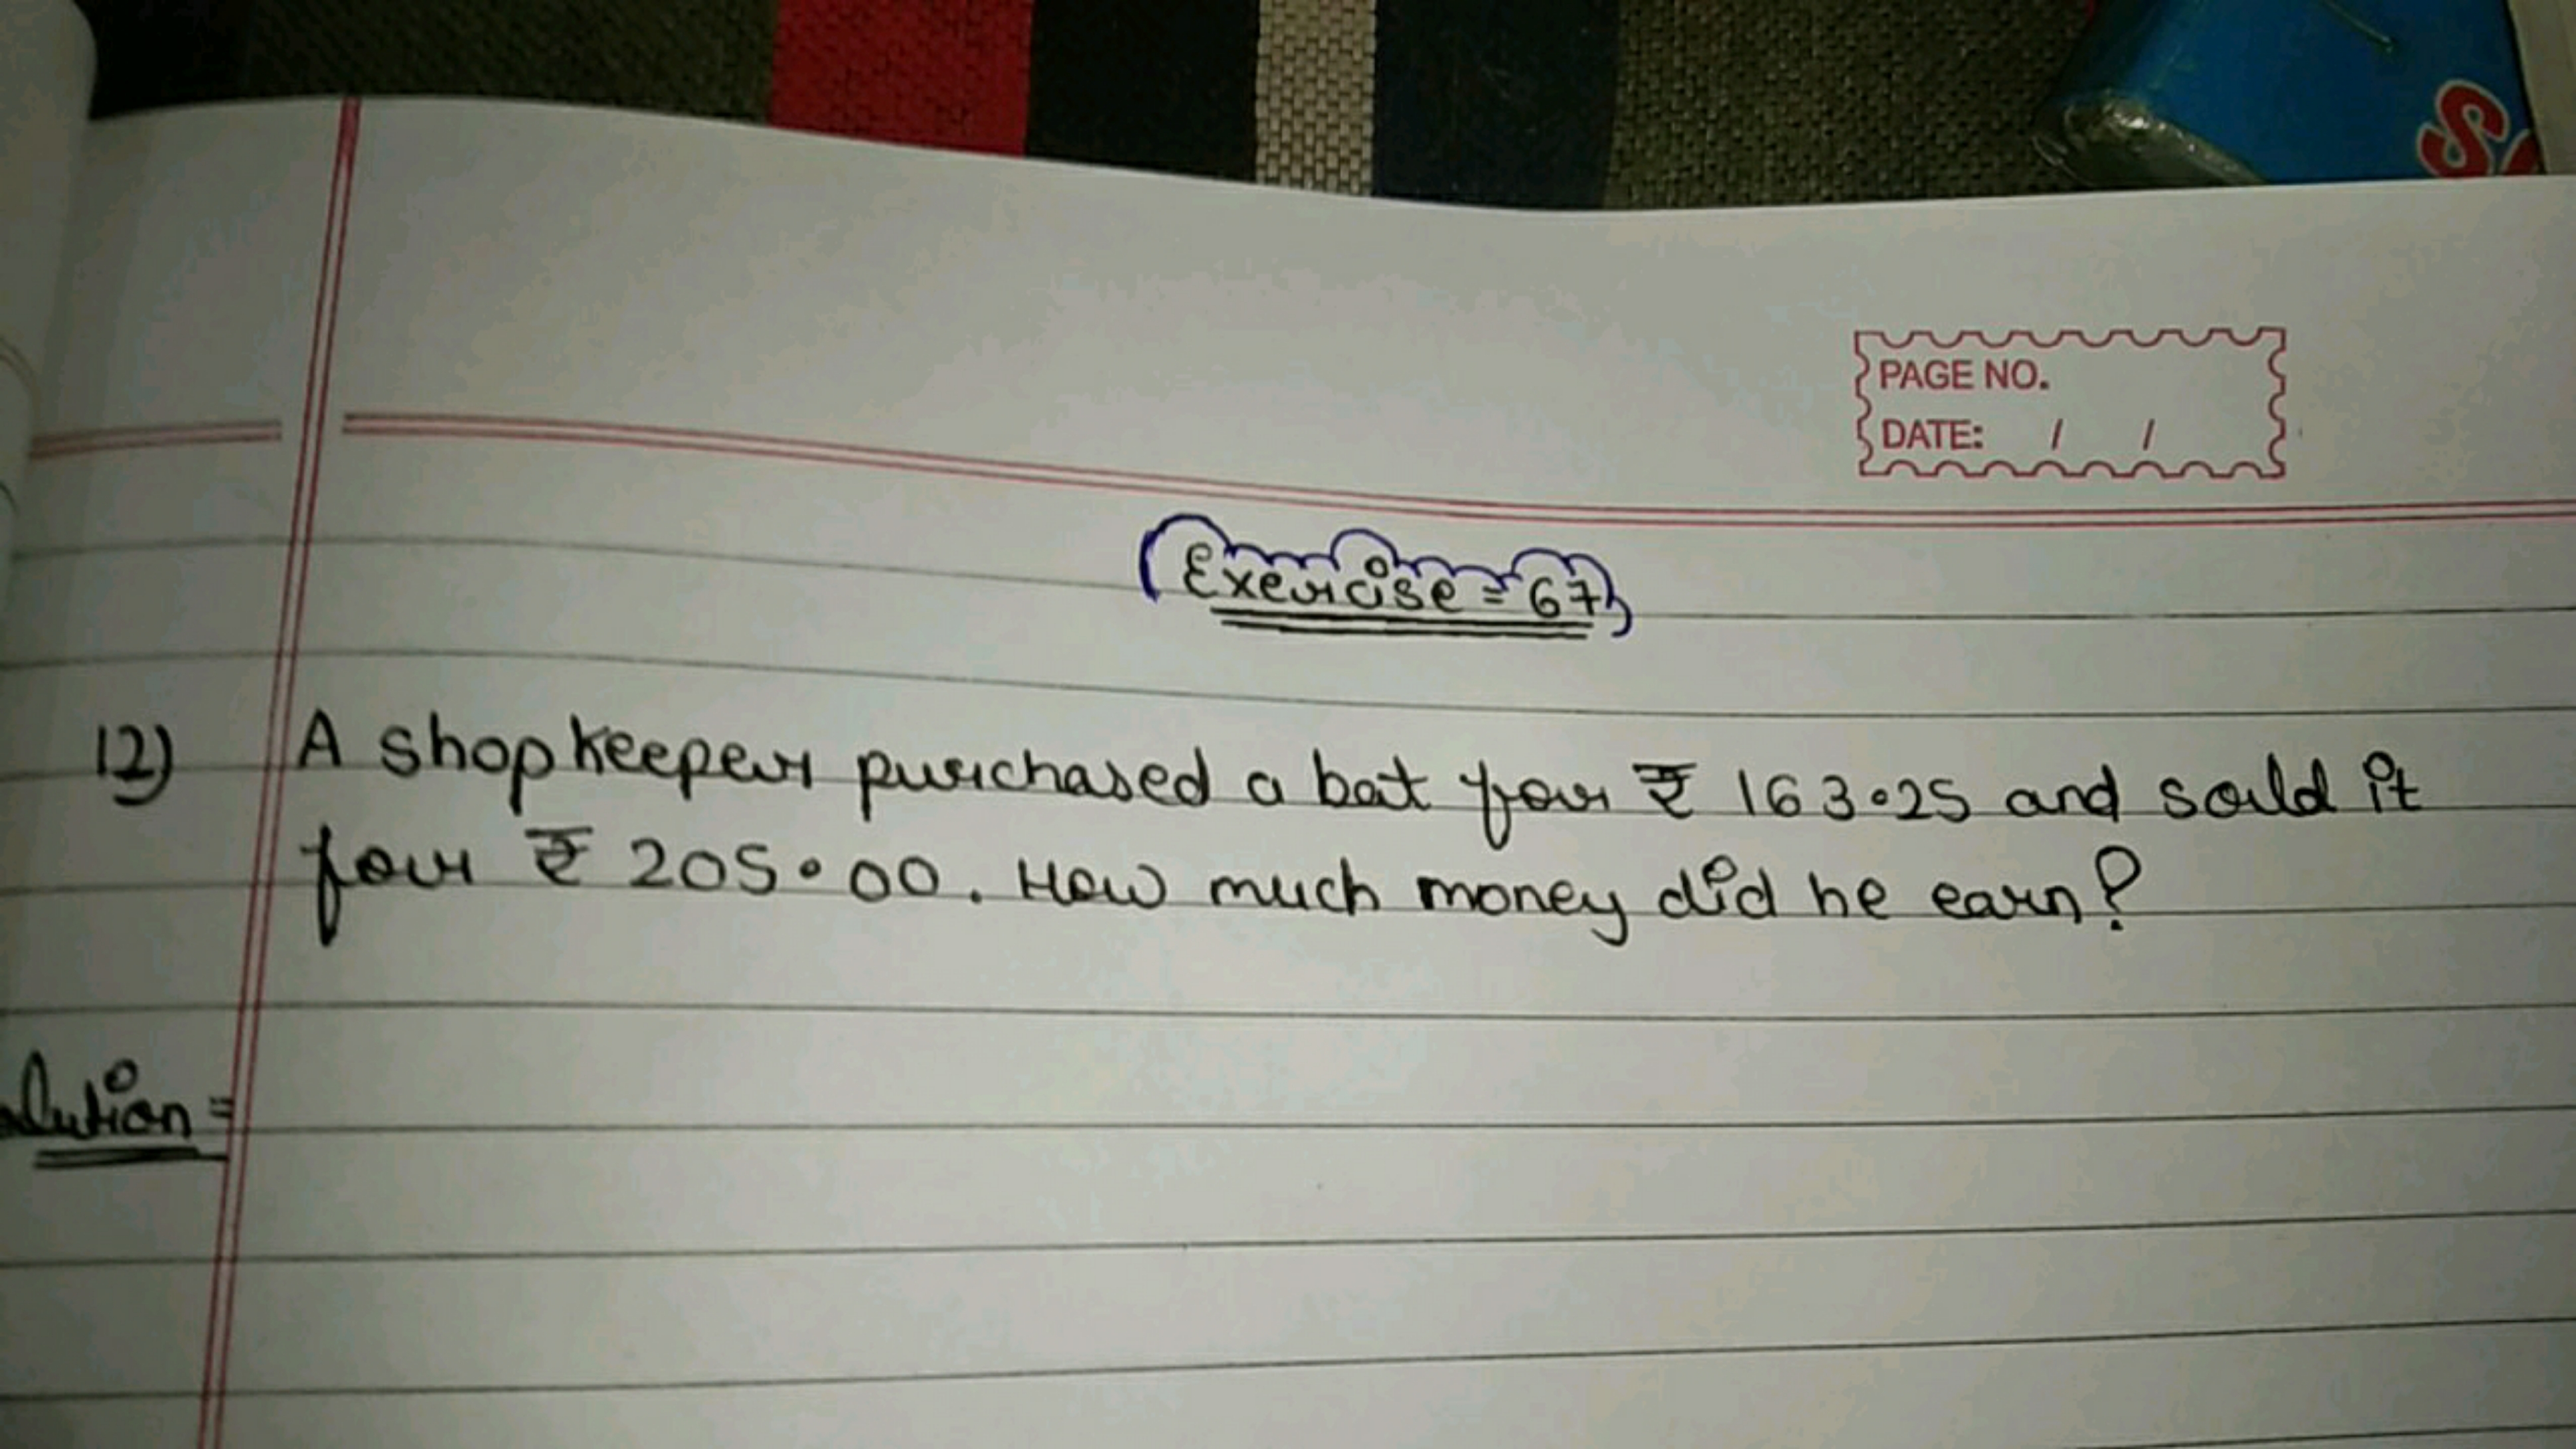 PAGE NO.
DATE: / /
Exercise = 67
12) A shopkeeper purchased a bat for ₹ 163.25 and sold it
for ₹ 205.00. How much money did he earn?
olution =